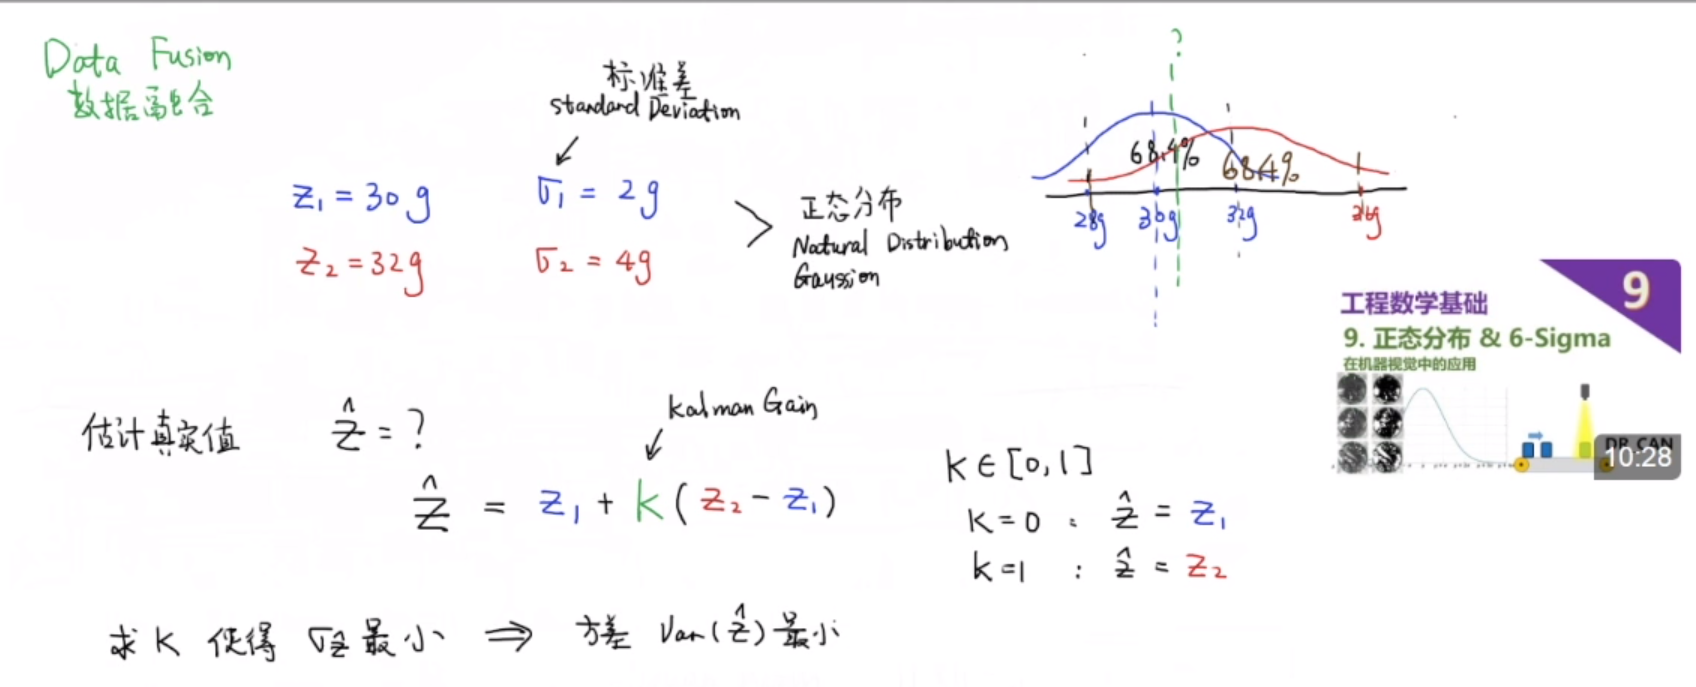 Data Fusion
数据融合
标准差
Standard Deviation
z₁ = 30g
σ₁ = 2g
z₂ = 32g
σ₂ = 4g
正态分布
Natural Distribution
Gaussion
?
68.4%
68.4%
28g
30g
32g
36g
9
工程数学基础
9. 正态分布 & 6-Sigma
在机器视觉中的应用
DR_CAN
10:28
估计真实值
ẑ = ?
Kalman Gain
ẑ = z₁ + k(z₂ - z₁)
k∈[0,1]
k=0 : ẑ = z₁
k=1 : ẑ = z₂
求 k 使得 σẑ 最小 ⇒ 方差 Var(ẑ) 最小